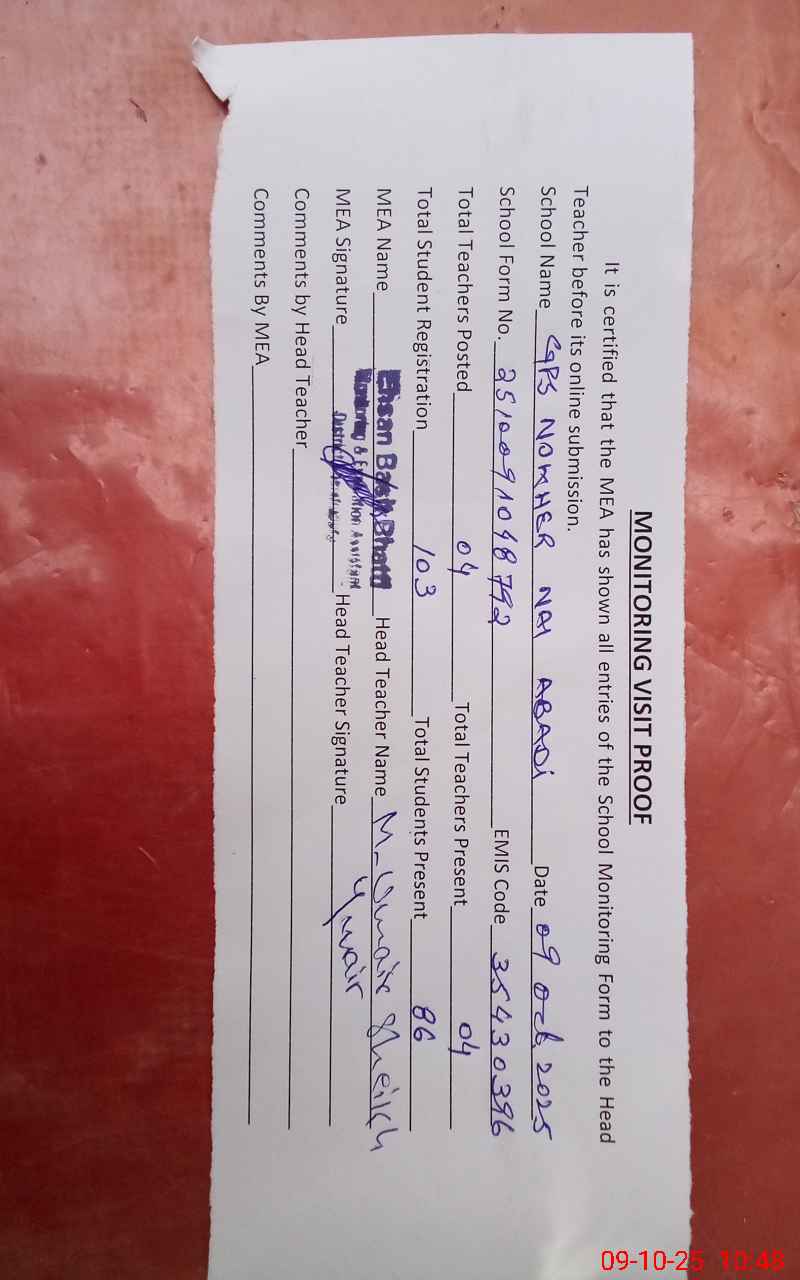 MONITORING VISIT PROOF
It is certified that the MEA has shown all entries of the School Monitoring Form to the Head
Teacher before its online submission.
School Name GPS NOMHER NAI ABADI Date 09 Oct 2025
School Form No. 2510091048792 EMIS Code 35430396
Total Teachers Posted 04 Total Teachers Present 04
Total Student Registration 103 Total Students Present 86
MEA Name Ehsan Bhatti Head Teacher Name M_Umair Sheikh
Monitoring & Assistant
MEA Signature District Head Teacher Signature Umair
Comments by Head Teacher
Comments By MEA
09-10-25 10:48